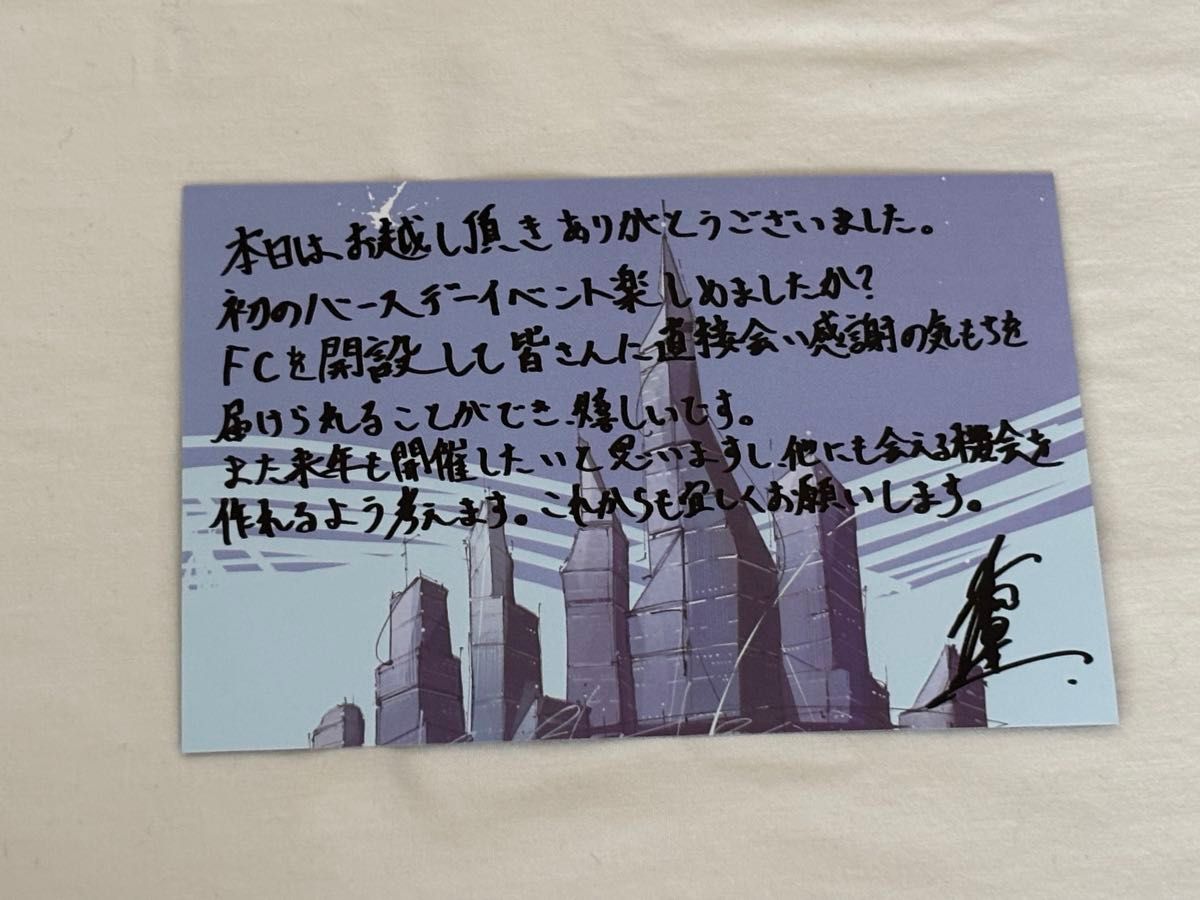 本日はお越し頂きありがとうございました。
初のバースデーイベント楽しめましたか?
FCを開設して皆さんに直接会い感謝の気もちを
届けられることができ、嬉しいです。
また来年も開催したいと思いますし、他にも会える機会を
作れるよう考えます。これからも宜しくお願いします。